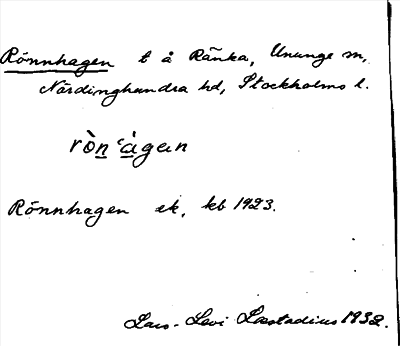 Rönnhagen t å Ränka, Ununge sn,
Närdinghundra hd, Stockholms l.
rò̀n ‘àgan
Rönnhagen ek, kb 1923.
Lars-Levi Læstadius 1932.